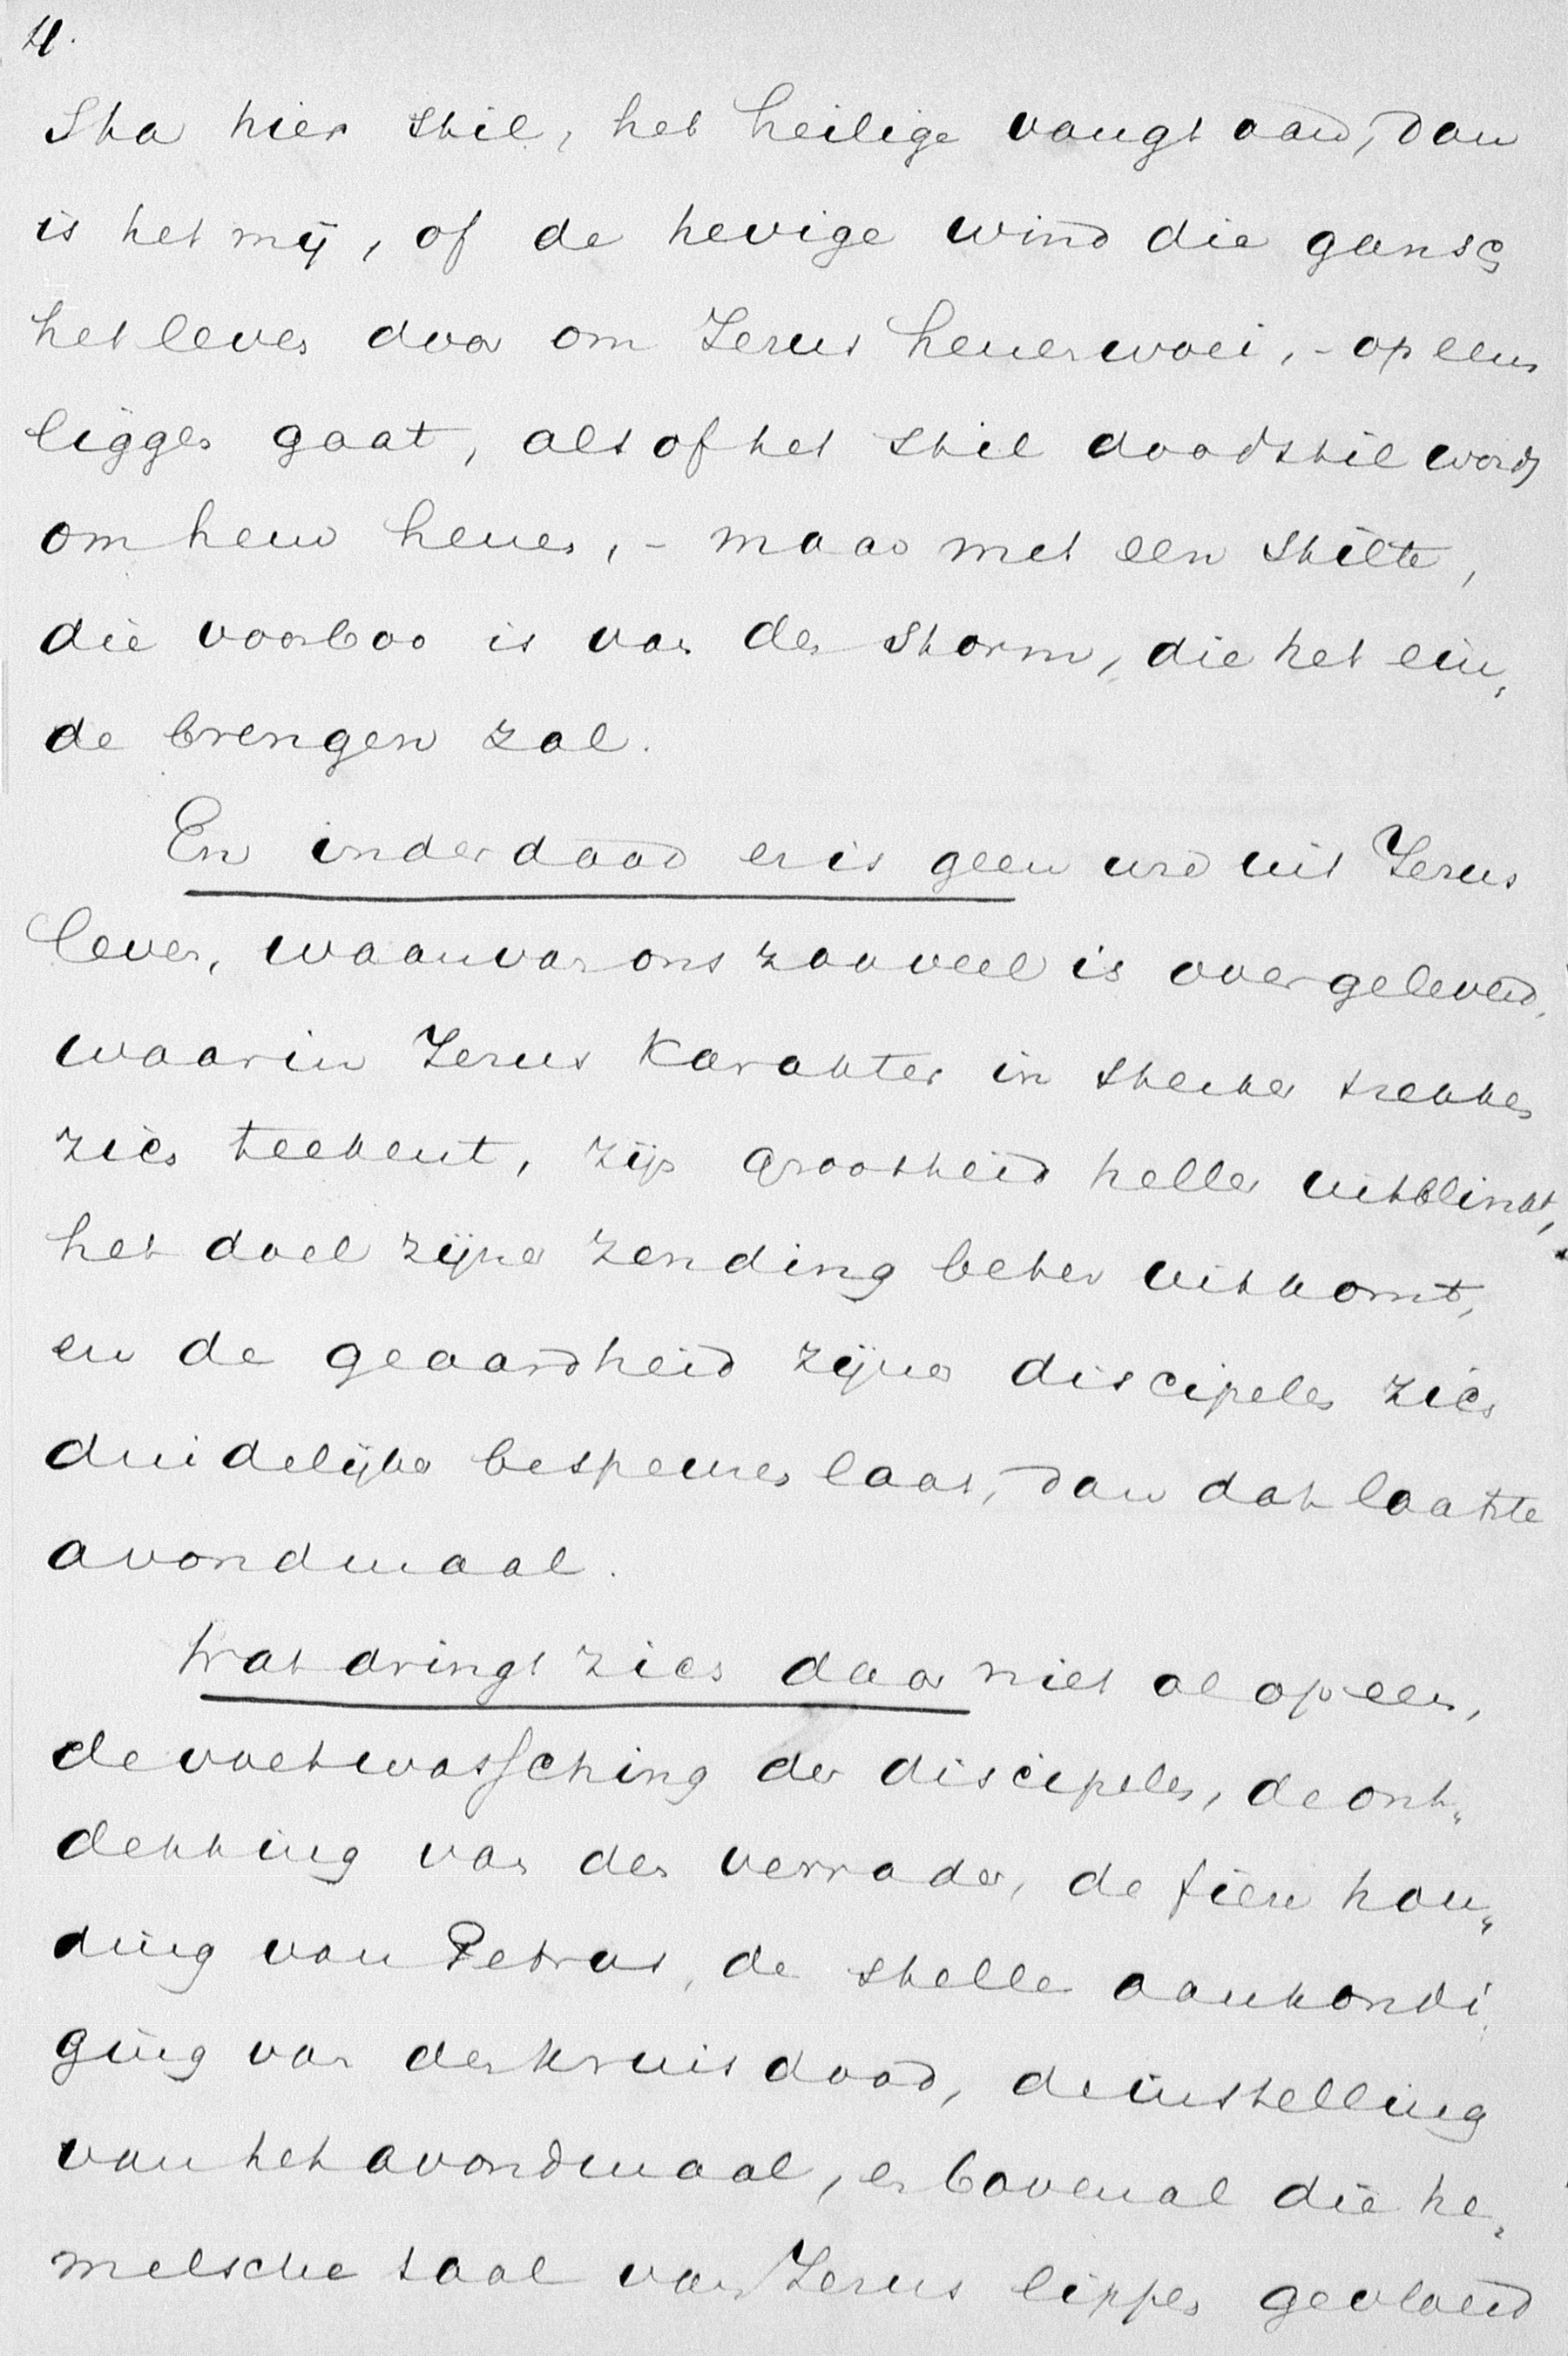 4.
Sta hier stil, het heilige vangt aan, dan
is het mij, of de hevige wind die gansch
het leven door om Jezus henenwoei, - opeens
liggen gaat, alsof het stil doodstil wordt
om hem henen, - maar met een stilte,
die voorboo is van den storm, die het ein„
de brengen zal.
En inderdaad er is geen ure uit Jezus
leven, waarvan ons zooveel is overgeleverd,
waarin Jezus karakter in sterker trekken
zich teekent, zijn grootheid heller uitblinkt,
het doel zijner zending beter uitkomt,
en de geaardheid zijner discipelen zich
duidelijker bespeuren laat, dan dat laatste
avondmaal.
Wat dringt zich daar niet al opeen,
de voetwassching der discipelen, de ont„
dekking van den verrader, de fiere hou„
ding van Petrus, de stelle aankondi„
ging van den kruisdood, de instelling
van het avondmaal, en bovenal die he„
melsche taal van Jezus lippen gevloeid